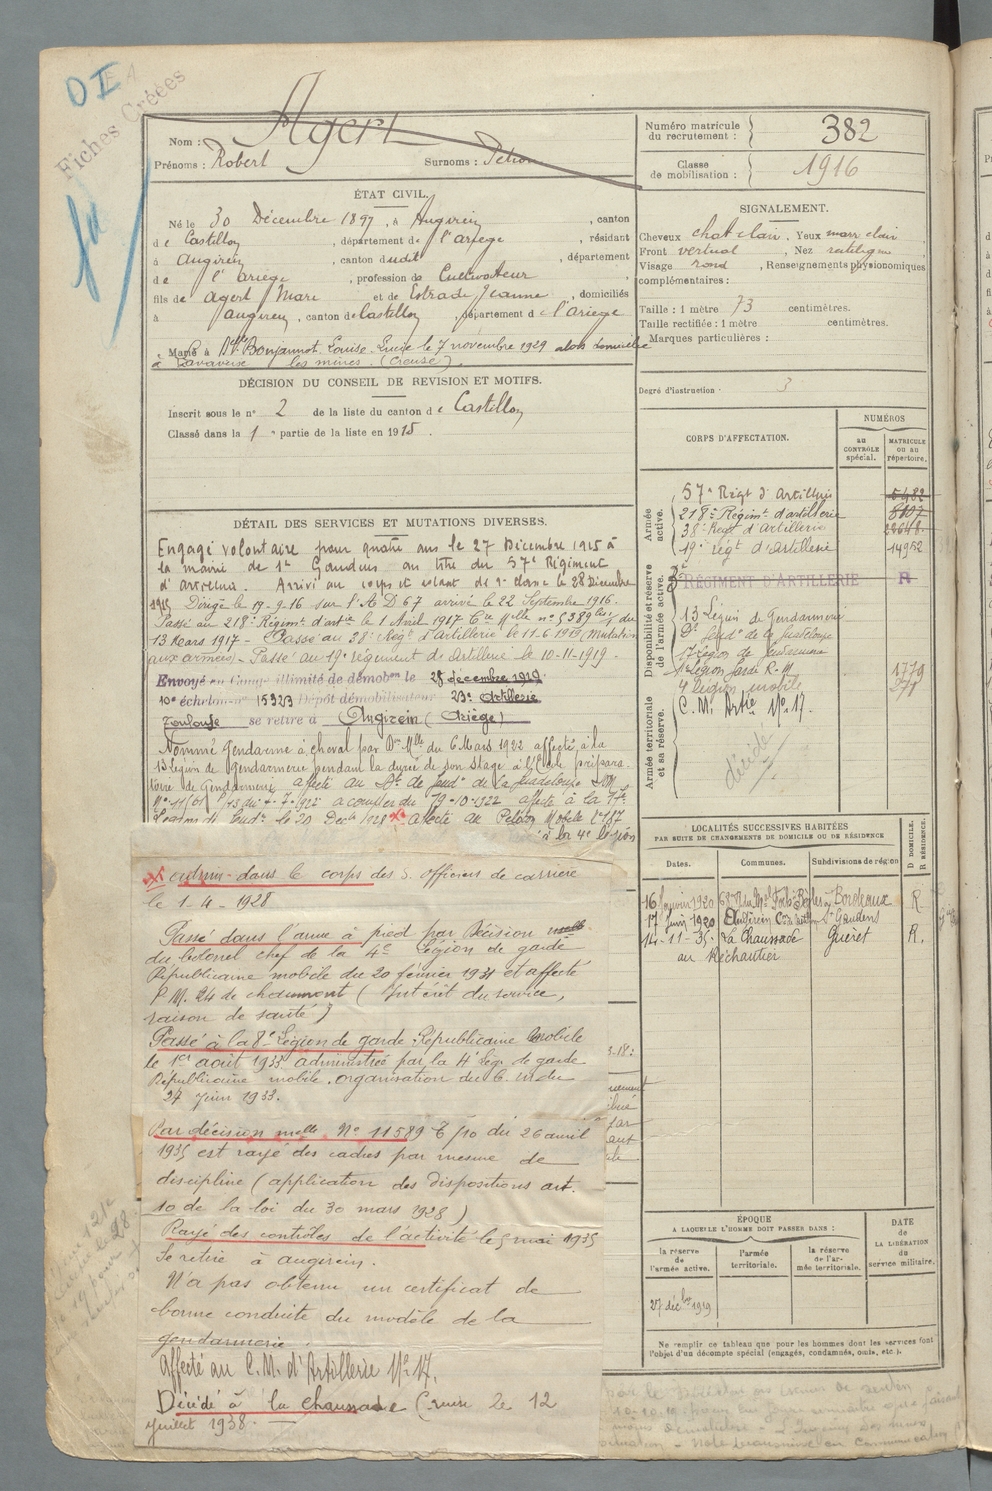 O I
Fiches Créées
Nom : Agert
Prénoms : Robert Surnoms :
Numéro matricule du recrutement : 382
Classe de mobilisation : 1916
ÉTAT CIVIL.
Né le 30 Décembre 1897, à Augirein, canton
de Castillon, département de l'ariège, résidant
à augirein, canton dudit, département
de l'ariège, profession de Cultivateur
fils de agert Marc et de Estrade Jeanne, domiciliés
à augirein, canton de Castillon, département de l'ariège
Marié à Dlle Bonjannot Louise Lucie le 7 novembre 1929 alors domiciliée
à Lavaveix les mines (Creuse).
SIGNALEMENT.
Cheveux chat clair, Yeux marr clair
Front vertical, Nez rectiligne
Visage rond, Renseignements physionomiques
complémentaires :
Taille : 1 mètre 73 centimètres.
Taille rectifiée : 1 mètre centimètres.
Marques particulières :
Degré d'instruction : 3
DÉCISION DU CONSEIL DE REVISION ET MOTIFS.
Inscrit sous le n° 2 de la liste du canton de Castillon
Classé dans la 1e partie de la liste en 1915.
DÉTAIL DES SERVICES ET MUTATIONS DIVERSES.
Engagé volontaire pour quatre ans le 27 Décembre 1915 à
la mairie de St Gaudens au titre du 57e Régiment
d'artillerie. Arrivé au corps et soldat de 2e classe le 28 Décembre
1915 Dirigé le 19-9-16 sur l'A D 67 arrivé le 22 Septembre 1916.
Passé au 218e Régimt d'artie le 1 Avril 1917 du
13 Mars 1917 - Passé au 38e Régt d'Artillerie le 11.6 1919 (mutation
aux armées) - Passé au 19e régiment de Artillerie le 10-11-1919.
Envoyé en Congé illimité de démobon le 28 décembre 1919
10e échelon n° 15323 Dépôt démobilisateur 23e Artillerie
Toulouse se retire à Augirein (Ariège)
Nommé Gendarme à cheval par Don Mlle du 6 Mars 1922 affecté à la
13 Légion de Gendarmerie pendant la durée de son stage à l'École prépara-
toire de Gendarmerie affecté au Dt de Gendie de la Guadeloupe
du 4-7-1922 à compter du 19-10-1922 affecté à la 17e
Légion de Gendie le 20 Décbre 1928 affecté au Peloton Mobile
à la 4e légion
admis dans le corps des s. officiers de carrière
le 1-4-1928
Passé dans l'arme à pied par Décision
du Colonel chef de la 4e Légion de garde
Républicaine mobile du 20 février 1931 et affecté
P.M. 24 de chaumont (Intérêt du service,
raison de santé)
Passé à la 8e Légion de garde Républicaine Mobile
le 1er août 1933 administré par la 4e Lég. de garde
Républicaine mobile. organisation du 6. du
27 Juin 1933.
Par décision melle No 11589 T/10 du 26 avril
1935 est rayé des cadres par mesure de
discipline (application des dispositions art.
10 de la loi du 30 mars 1928)
Rayé des contrôles de l'activité le 5 mai 1935
Se retire à augirein.
N'a pas obtenu un certificat de
bonne conduite du modèle de la
gendarmerie.
Affecté au C. M. d'Artillerie No 17.
Décédé à la Chaussade Creuse le 12
Juillet 1938.
CORPS D'AFFECTATION.
NUMÉROS
au CONTRÔLE spécial.
MATRICULE ou au répertoire.
Armée active.
57e Régt d'Artillerie 5482
218e Régimt d'artillerie 8107
38e Régt d'Artillerie 22648
19e régt d'Artillerie 14952
Disponibilité et réserve de l'armée active.
RÉGIMENT D'ARTILLERIE R
13 Légion de Gendarmerie
Dt Gendie de la Guadeloupe
17 Légion de Gendarmerie
Légion Garde R.M. 1779
4 légion mobile 271
Armée territoriale et sa réserve.
C.M. Artie No 17.
décédé
LOCALITÉS SUCCESSIVES HABITÉES
PAR SUITE DE CHANGEMENTS DE DOMICILE OU DE RÉSIDENCE
Dates. Communes. Subdivisions de région D DOMICILE. R RÉSIDENCE.
16 Janvier 1920 Bègles Bordeaux R
17 Juin 1920 St Gaudens
14-11-35. La Chaussade Guéret R.
au Réchautier
ÉPOQUE
A LAQUELLE L'HOMME DOIT PASSER DANS :
la réserve de l'armée active.
l'armée territoriale.
la réserve de l'armée territoriale.
DATE de LA LIBÉRATION du service militaire.
27 décbre 1919
Ne remplir ce tableau que pour les hommes dont les services font
l'objet d'un décompte spécial (engagés, condamnés, omis, etc.).